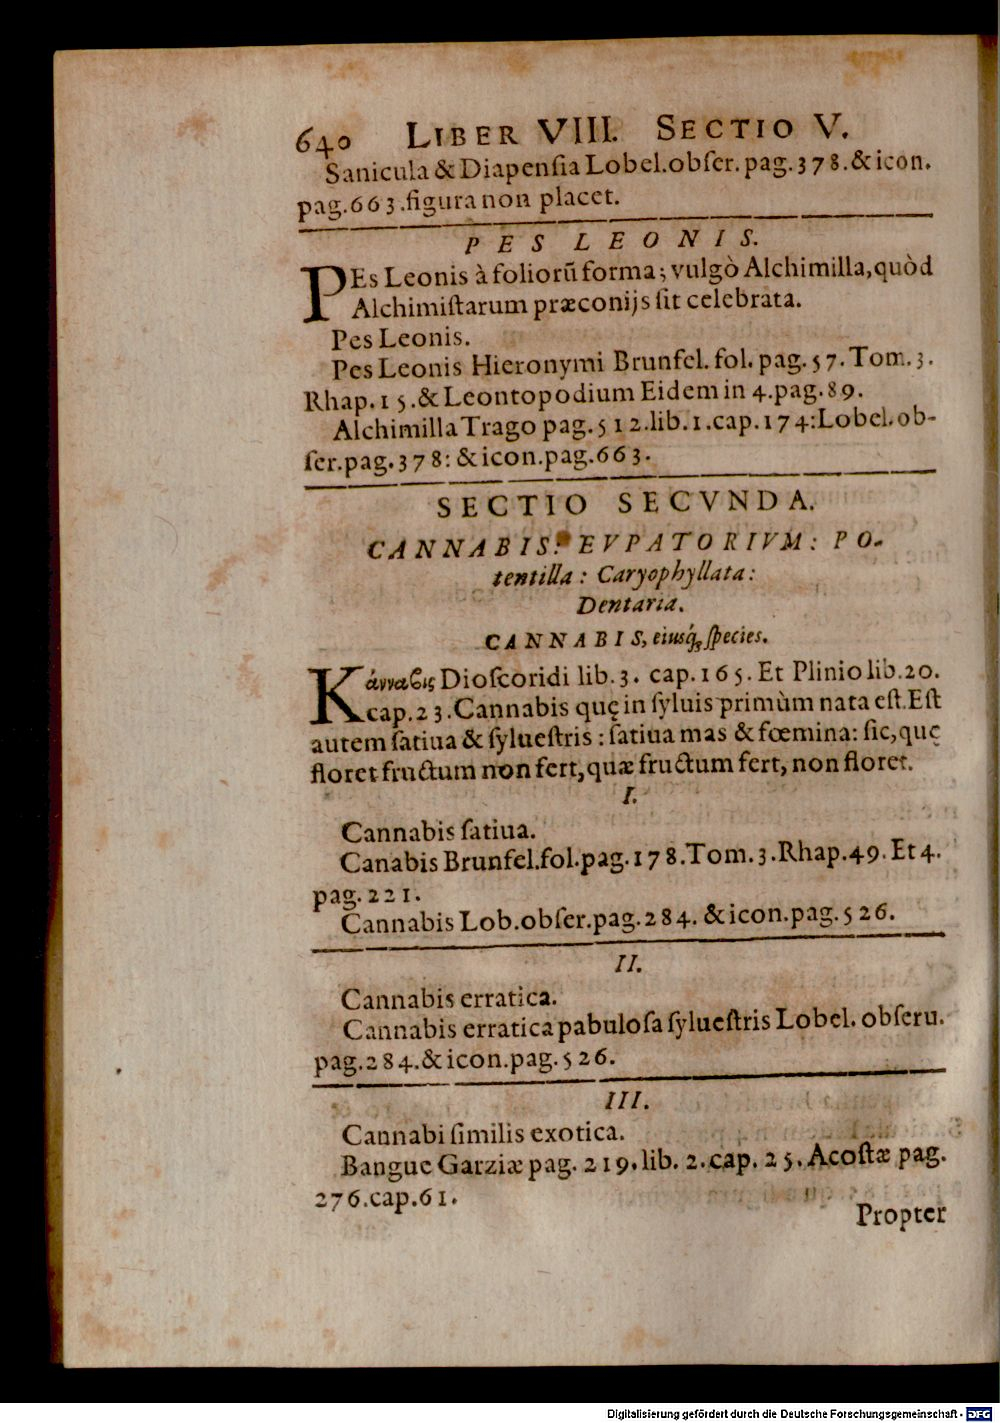 640 LIBER VIII. SECTIO V.
Sanicula & Diapenſia Lobel.obſer.pag.378.& icon.
pag.663.figura non placet.
PES LEONIS.
PEs Leonis à foliorũ forma; vulgò Alchimilla, quòd
Alchimiſtarum præconijs ſit celebrata.
Pes Leonis.
Pes Leonis Hieronymi Brunfel. fol. pag. 57. Tom. 3.
Rhap. 15. & Leontopodium Eidem in 4. pag. 89.
Alchimilla Trago pag. 512. lib. 1. cap. 174: Lobel. ob-
ſer.pag.378: & icon.pag.663.
SECTIO SECVNDA.
CANNABIS: EVPATORIVM: PO-
tentilla: Caryophyllata:
Dentaria.
CANNABIS, eiusq́; ſpecies.
Κάνναϐις Dioſcoridi lib. 3. cap. 165. Et Plinio lib. 20.
cap. 23. Cannabis quę in ſyluis primùm nata eſt. Eſt
autem ſatiua & ſylueſtris: ſatiua mas & fœmina: ſic, quę
floret fructum non fert, quæ fructum fert, non floret.
I.
Cannabis ſatiua.
Canabis Brunfel.fol.pag.178.Tom.3.Rhap.49.Et 4.
pag. 221.
Cannabis Lob.obſer.pag.284. & icon.pag.526.
II.
Cannabis erratica.
Cannabis erratica pabuloſa ſylueſtris Lobel. obſeru.
pag.284.& icon.pag.526.
III.
Cannabi ſimilis exotica.
Bangue Garziæ pag. 219. lib. 2. cap. 25. Acoſtæ pag.
276.cap.61.
Propter
Digitalisierung gefördert durch die Deutsche Forschungsgemeinschaft - DFG